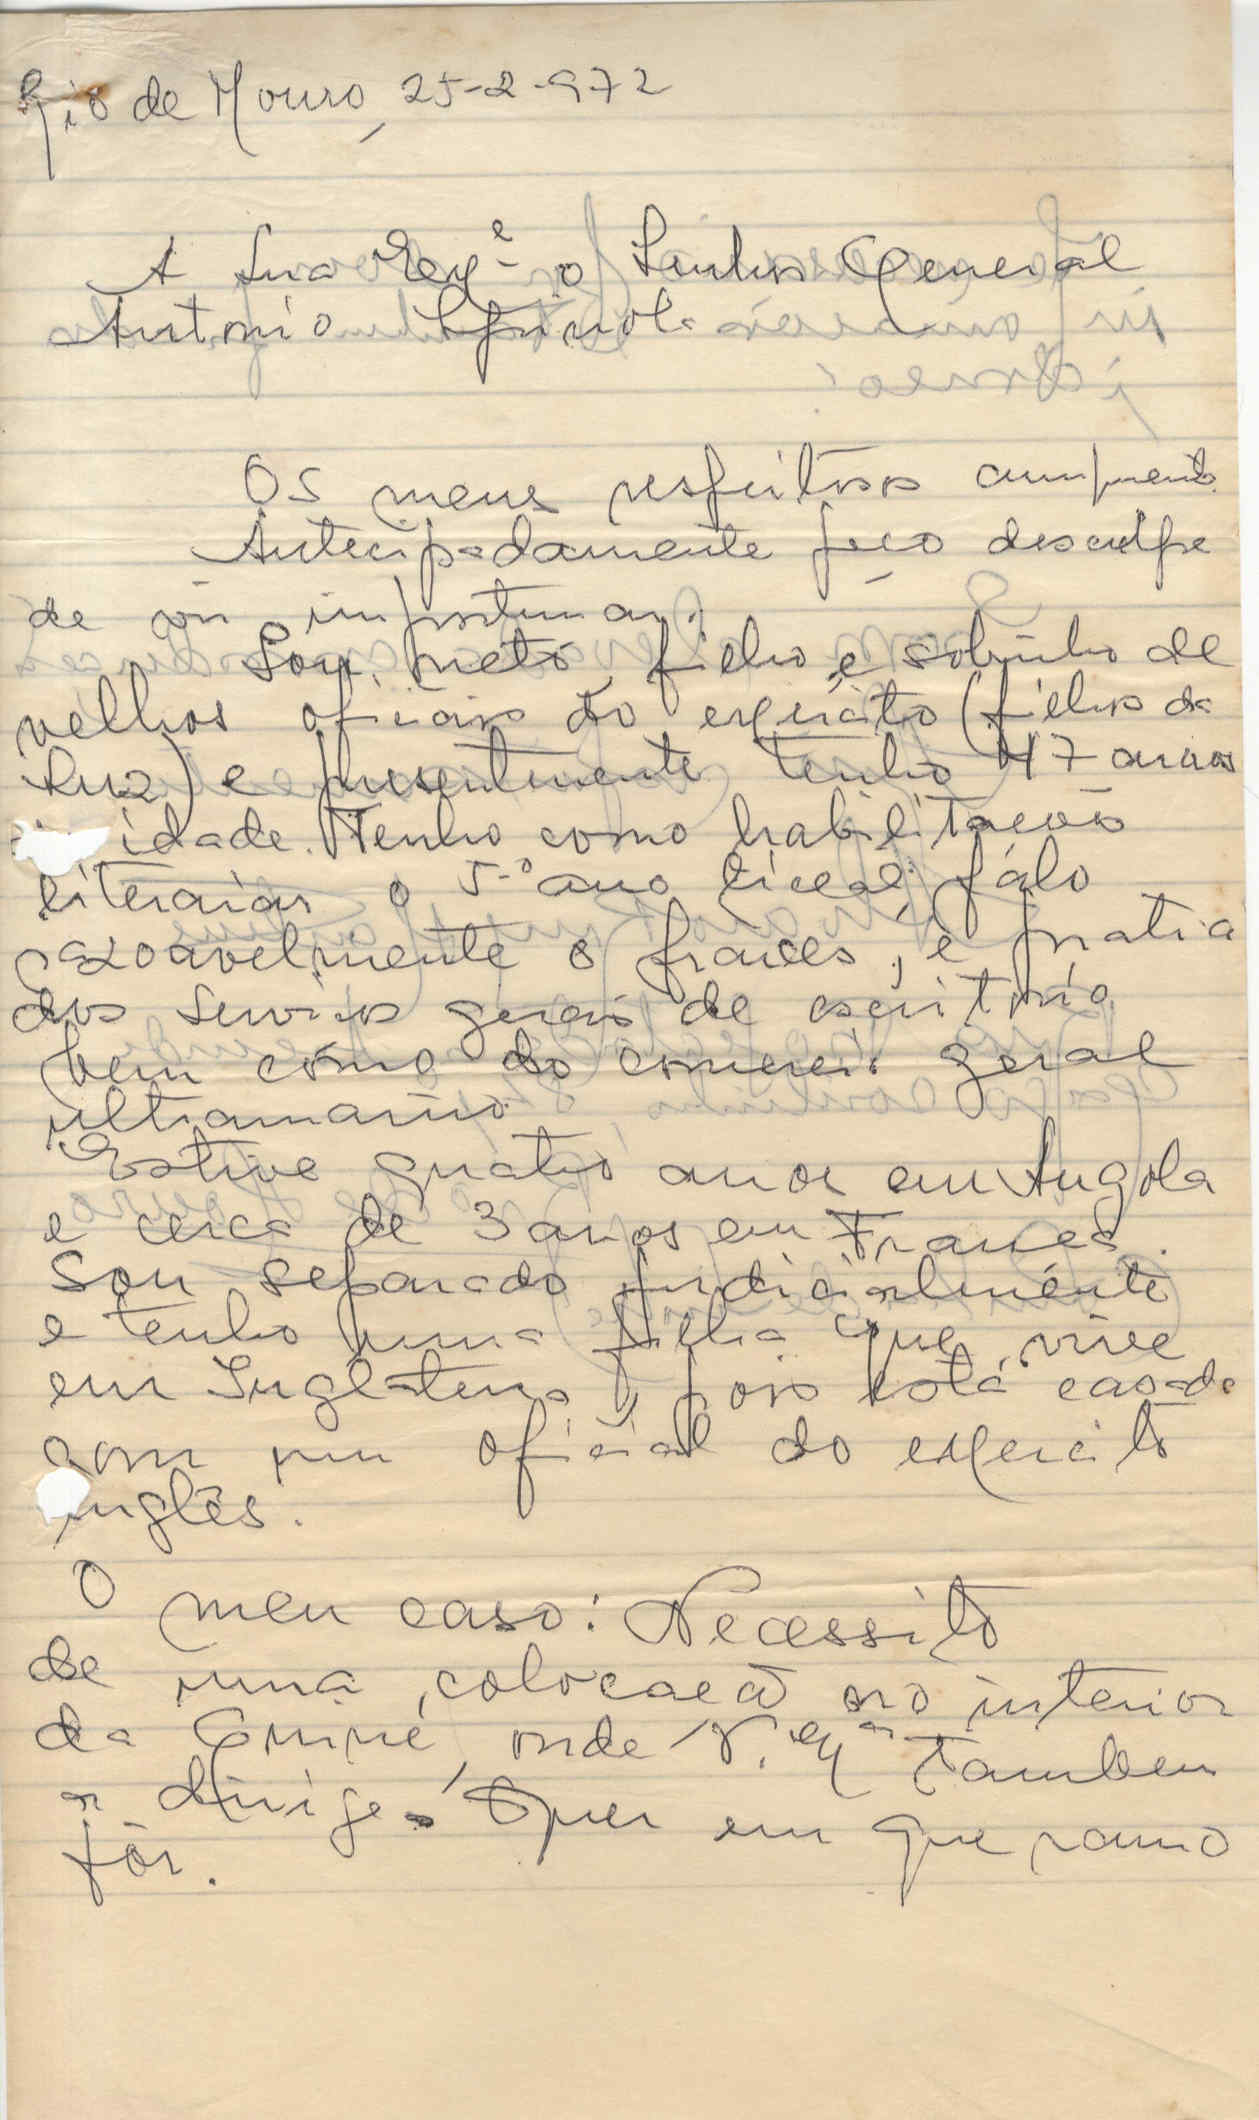 Rio de Mouro, 25-2-972
A Sua Exª o Senhor General
António Spinola
Os meus respeitosos cumprimentos
Antecipadamente peço desculpe
de vir importunar.
Sou neto, filho e sobrinho de
velhos oficiais do exército (filho da
Luz) e presentemente tenho 47 anos
idade. Tenho como habilitações
literárias o 5º ano liceal, fálo
razoavelmente o frances, e pratica
dos serviços gerais de escritório
bem como do comercio geral
ultramarino.
Estive quatro anos em Angola
e cerca de 3 anos em França.
Sou separado judicialmente
e tenho uma filha que vive
em Inglaterra, pois está casada
com um oficial do exercito
inglês.
O meu caso: Necessito
de uma colocação no interior
da Guiné, onde V. Exª tambem
a dirige. Quer em que ramo
fôr.